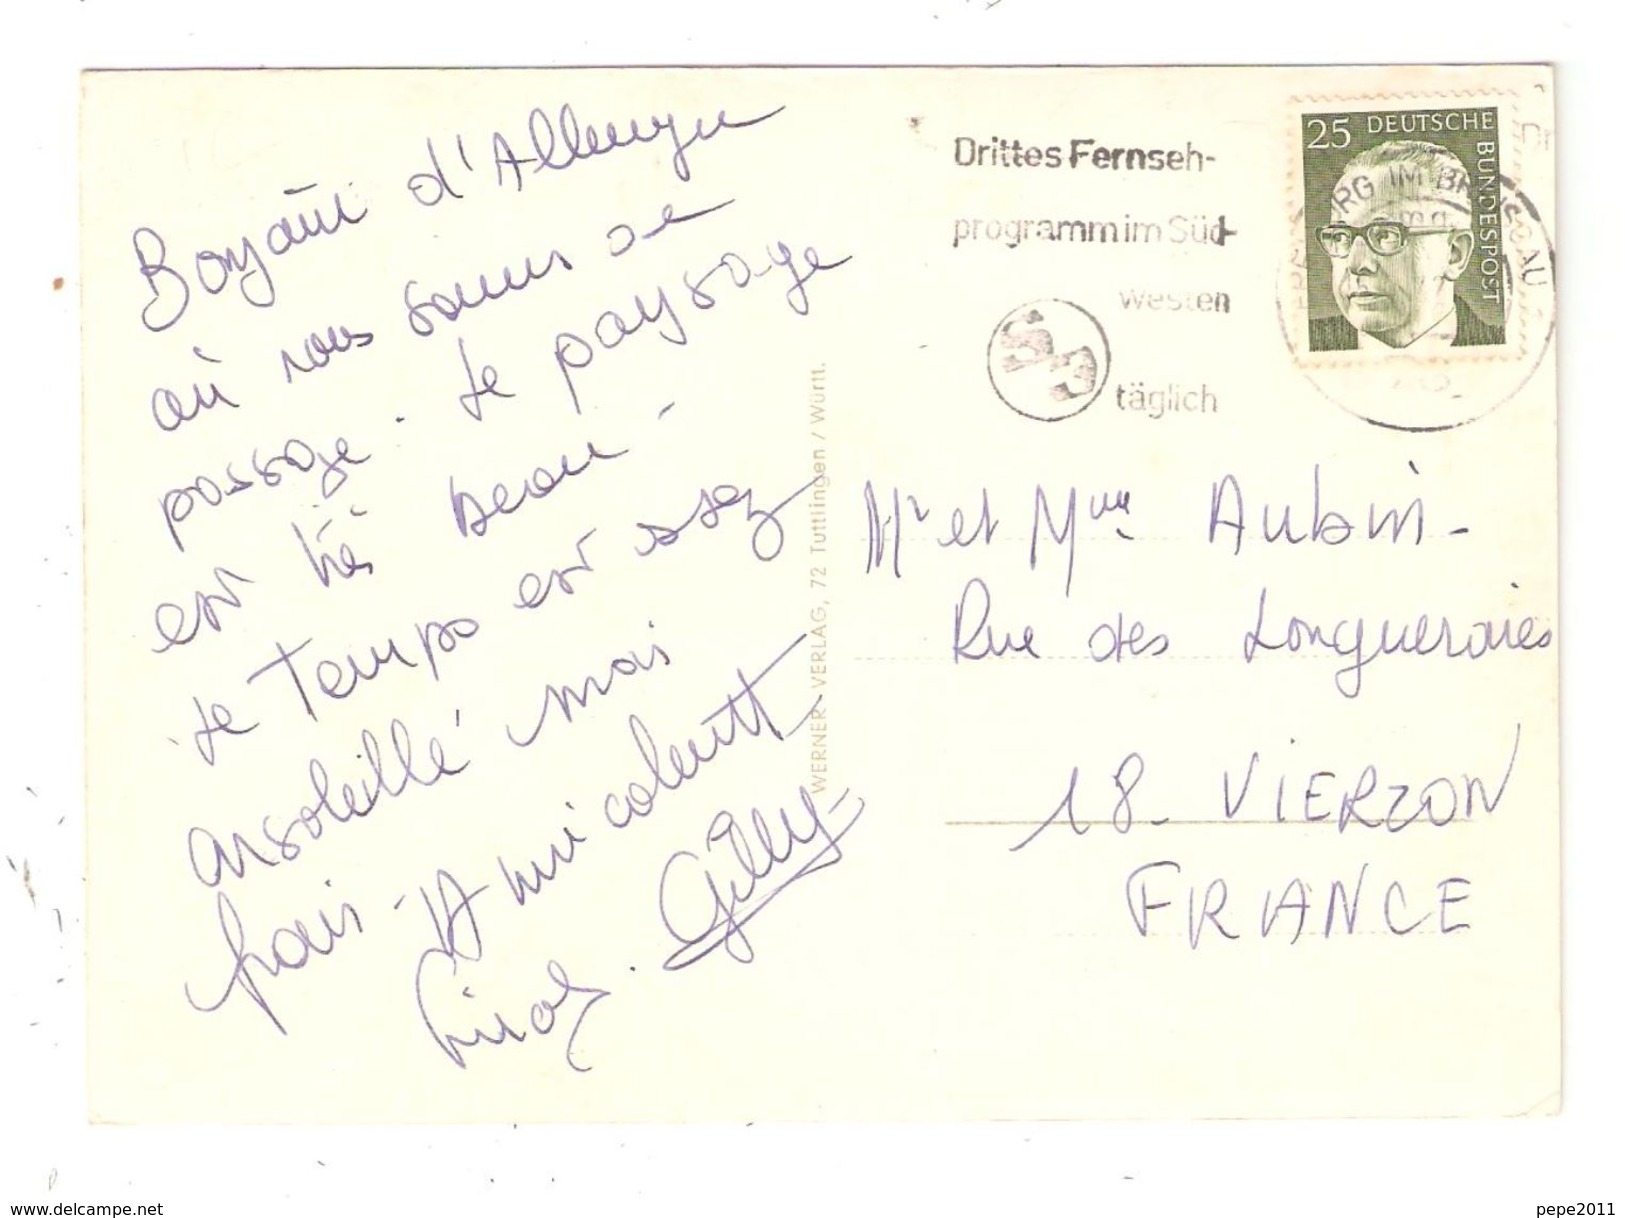 Bonjour d'Allemagne
où nous sommes de
passage. Le paysage
est très beau -
Le Temps est assez
ensoleillé mais
frais - Amicalement
Gilly
Drittes Fernseh-
programm im Süd-
westen
täglich
S3
25 DEUTSCHE
BUNDESPOST
FREIBURG IM BREISGAU 1
WERNER - VERLAG, 72 Tuttlingen / Württ.
Mr et Mme Aubin -
Rue des Longueraies
18 - VIERZON
FRANCE
www.delcampe.net
pepe2011